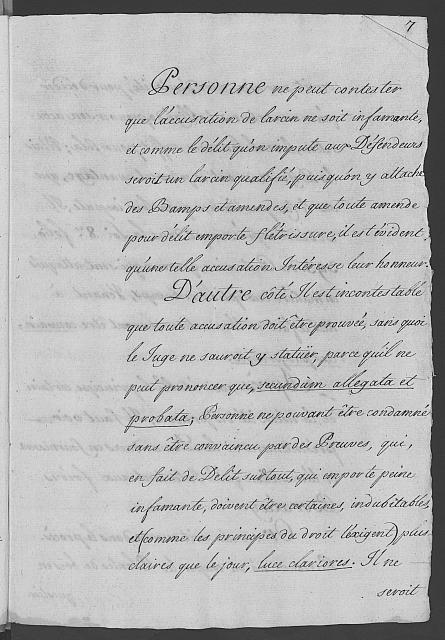 7
Personne ne peut contester
que l'accusation de larcin ne soit infamante,
et comme le délit qu'on impute aux Défendeurs
seroit un larcin qualifié, puisqu'on y attache
des Bamps et amendes, et que toute amende
pour délit emporte flétrissure, il est évident
qu'une telle accusation Intéresse leur honneur.
D'autre côté Il est incontestable
que toute accusation doit être prouvée, sans quoi
le Juge ne sauroit y statüer, parce qu'il ne
peut prononcer que, secundum allegata et
probata; Personne ne pouvant être condamné
sans être convaincu par des Preuves, qui
en fait de Délit surtout, qui emporte peine
infamante, doivent être certaines, indubitables,
et (comme les principes du droit l'exigent) plus
claires que le jour, luce clariores. Il ne
seroit